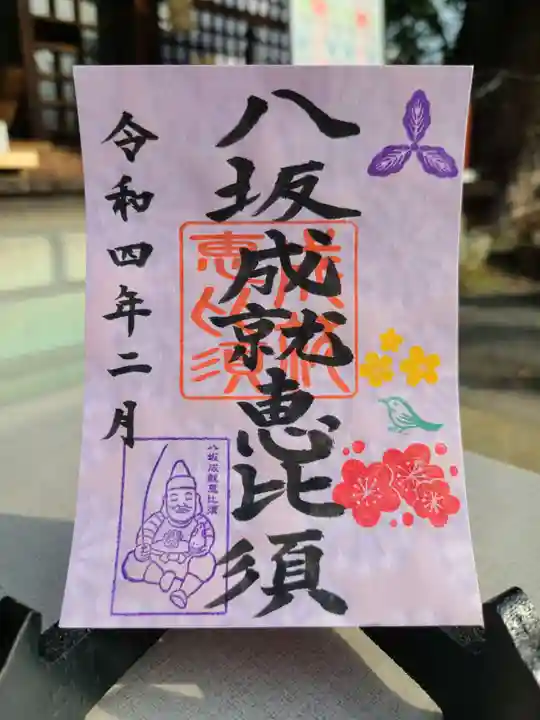 八坂成就恵比須
令和四年二月
八坂成就恵比須